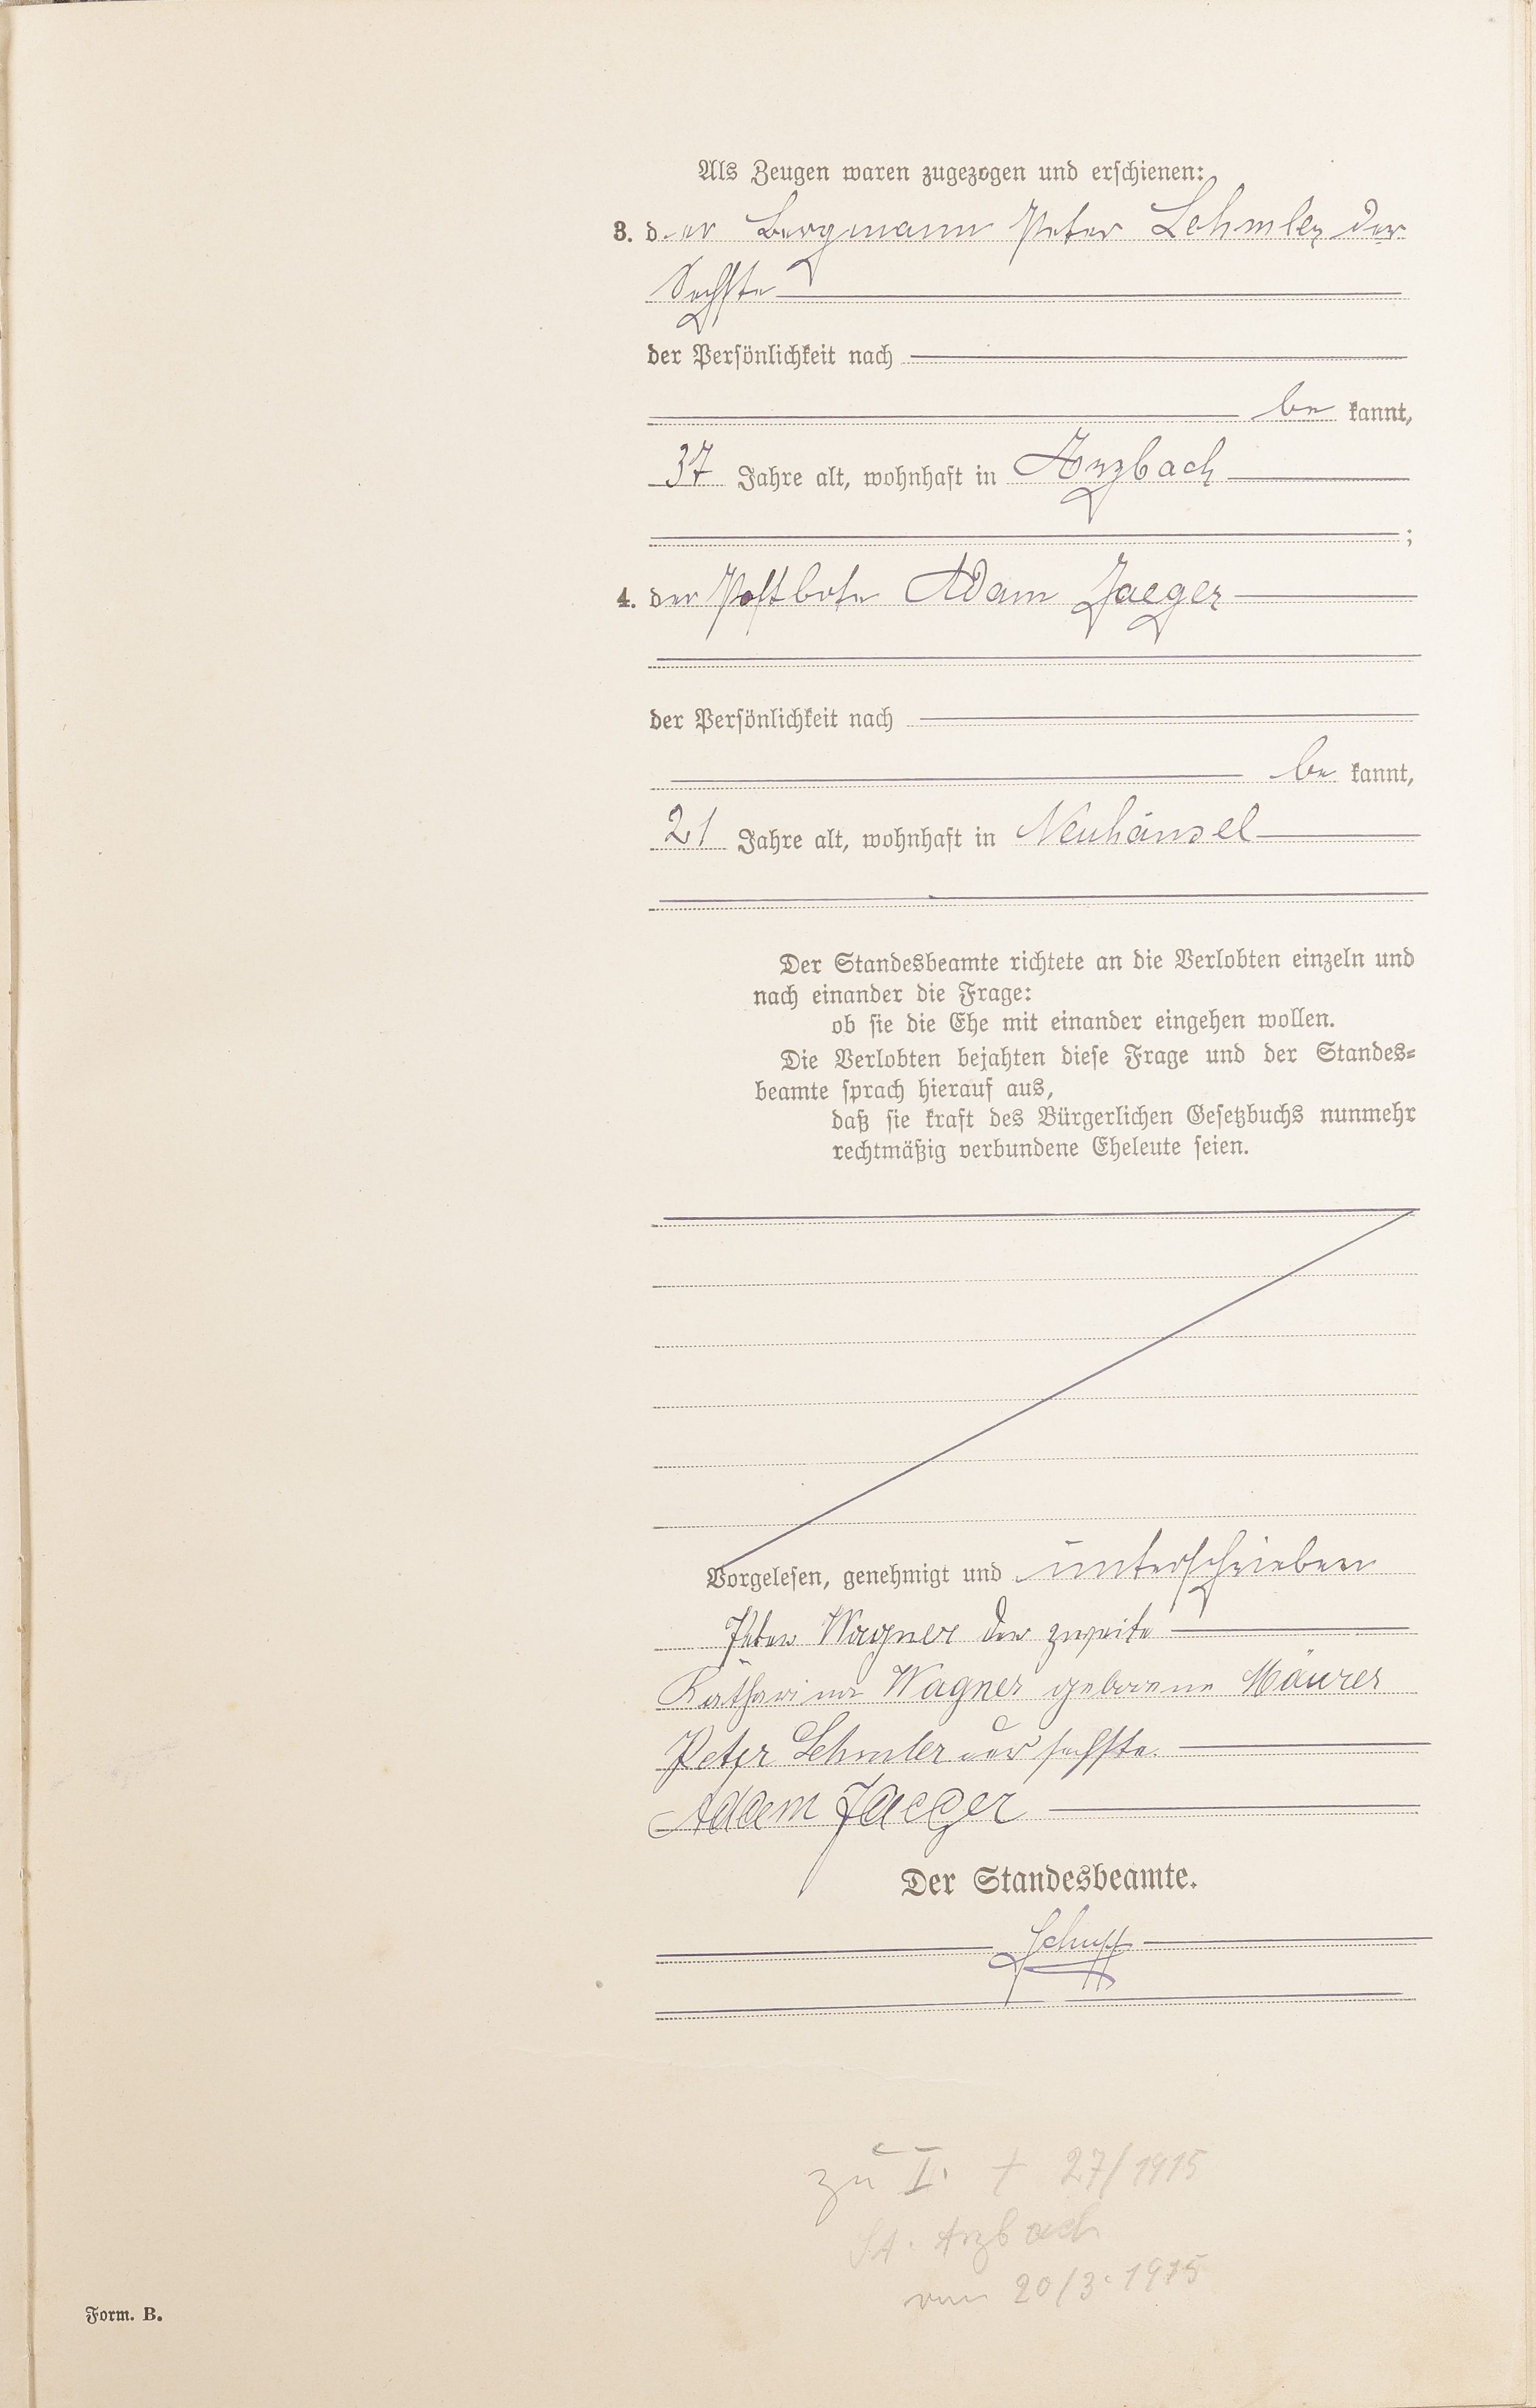 Als Zeugen waren zugezogen und erschienen:
3. der Bergmann Peter Lehmler der
Sechste
der Persönlichkeit nach
be kannt,
37 Jahre alt, wohnhaft in Arzbach
;
4. der Postbote Adam Jaeger
der Persönlichkeit nach
be kannt,
21 Jahre alt, wohnhaft in Neuhäusel
Der Standesbeamte richtete an die Verlobten einzeln und
nach einander die Frage:
ob sie die Ehe mit einander eingehen wollen.
Die Verlobten bejahten diese Frage und der Standes-
beamte sprach hierauf aus,
daß sie kraft des Bürgerlichen Gesetzbuchs nunmehr
rechtmäßig verbundene Eheleute seien.
Vorgelesen, genehmigt und unterschrieben
Peter Wagner der zweite
Katharina Wagner geborene Maurer
Peter Lehmler der sechste.
Adam Jaeger
Der Standesbeamte.
Schupp
zu I. † 27/1915
St. Arzbach
vom 20/3. 1915
Form. B.